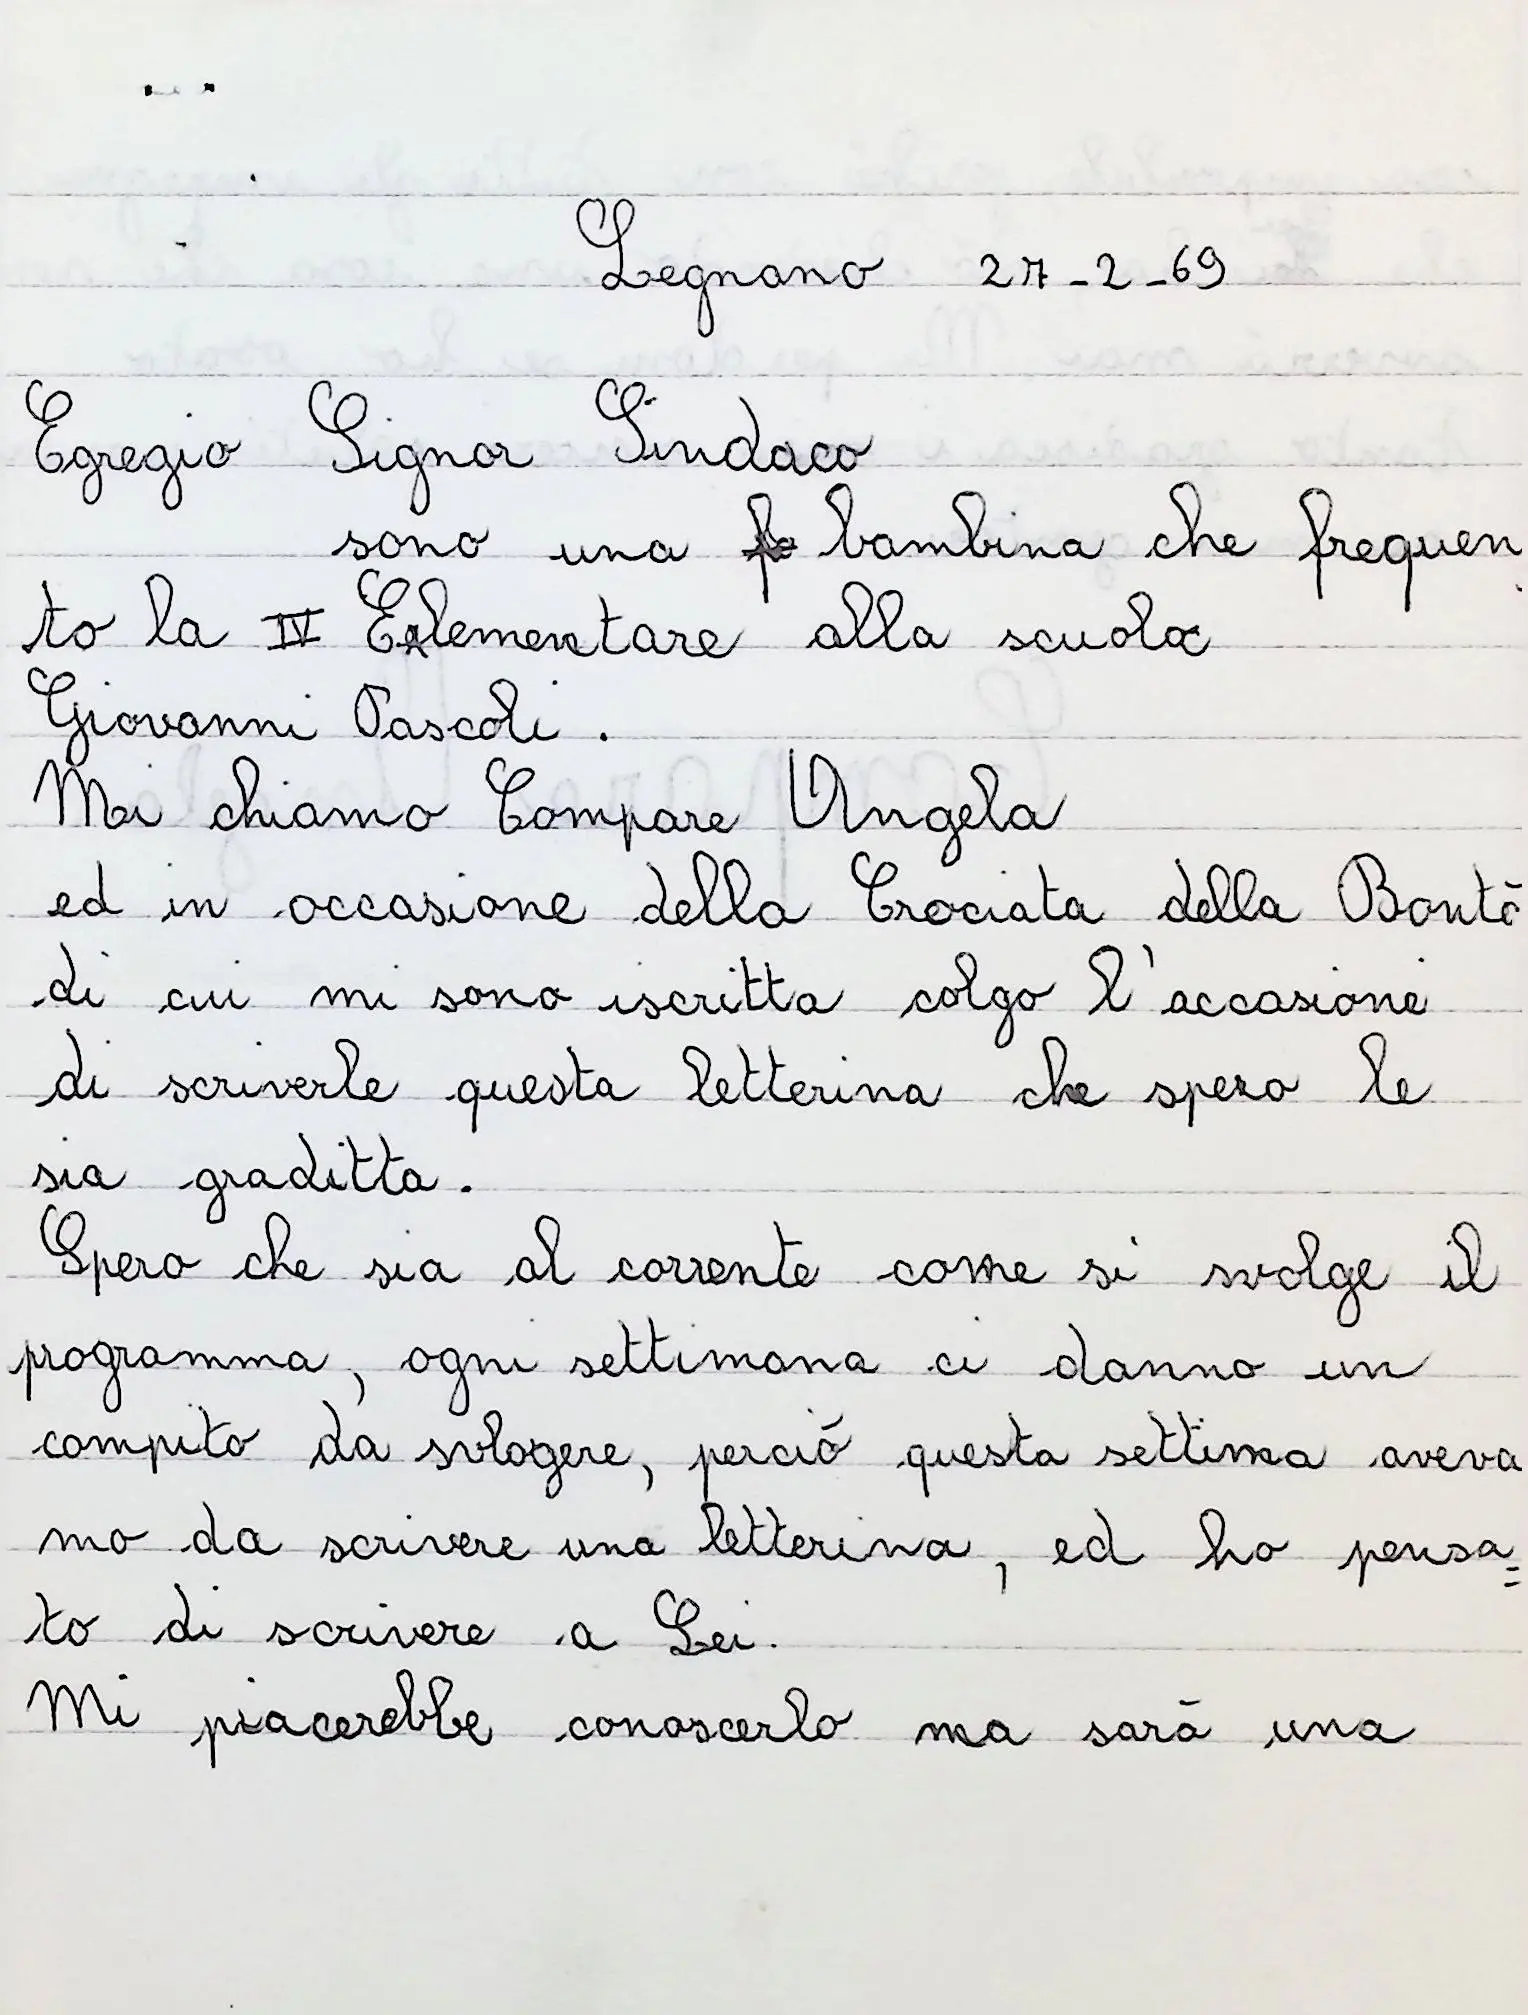 Legnano 27-2-69
Egregio Signor Sindaco
sono una bambina che frequen
to la IV Elementare alla scuola
Giovanni Pascoli.
Mi chiamo Compare Angela
ed in occasione della Crociata della Bontà
di cui mi sono iscritta colgo l'accasione
di scriverle questa letterina che spero le
sia graditta.
Spero che sia al corrente come si svolge il
programma, ogni settimana ci danno un
compito da svlogere, perciò questa settima aveva
mo da scrivere una letterina, ed ho pensa=
to di scrivere a Lei.
Mi piacerebbe conoscerlo ma sarà una